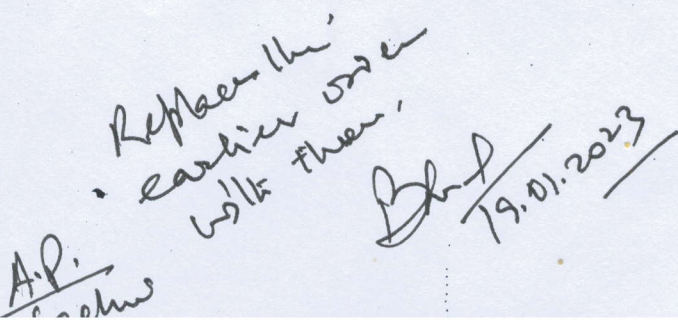 Replace the
earlier order
with them.
19.01.2023
A.P.